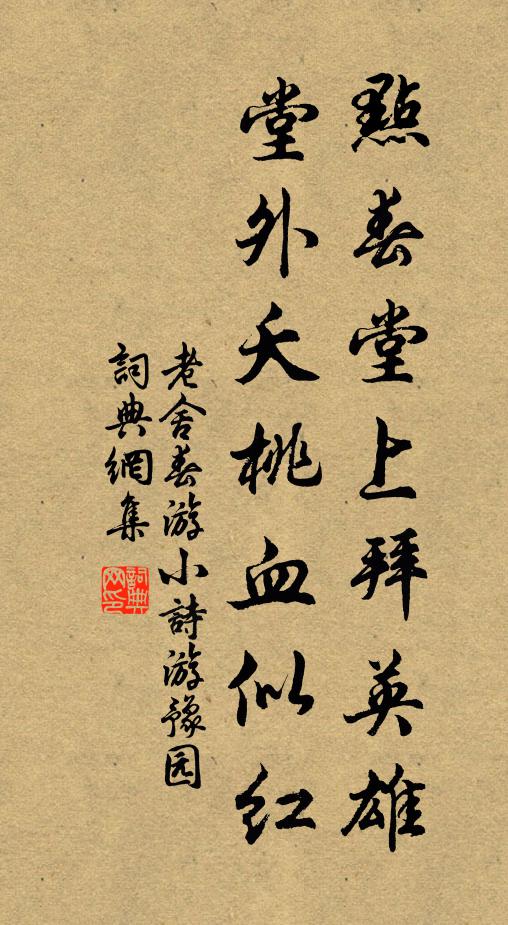 點春堂上拜英雄
堂外夭桃血似紅
老舍春游小詩游豫园
詞典網集
詞典网印